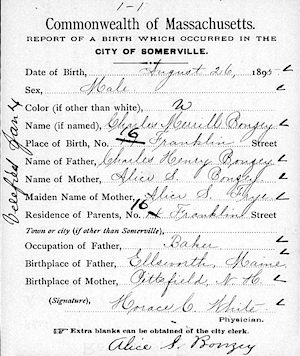 1-1
Commonwealth of Massachusetts.
REPORT OF A BIRTH WHICH OCCURRED IN THE
CITY OF SOMERVILLE.
Date of Birth, August 26, 1895
Sex, Male
Color (if other than white), W
Name (if named), Charles Merrill Bonzey
Place of Birth, No. 16 Franklin Street
Name of Father, Charles Henry Bonzey
Name of Mother, Alice S. Bonzey
Maiden Name of Mother, Alice S. Frye
Residence of Parents, No. 16 Franklin Street
Town or city (if other than Somerville),
Occupation of Father, Baker
Birthplace of Father, Ellsworth, Maine
Birthplace of Mother, Pittsfield, N. H.
(Signature), Horace C. White
Physician.
Extra blanks can be obtained of the city clerk.
Alice S. Bonzey
Verified Jan 4